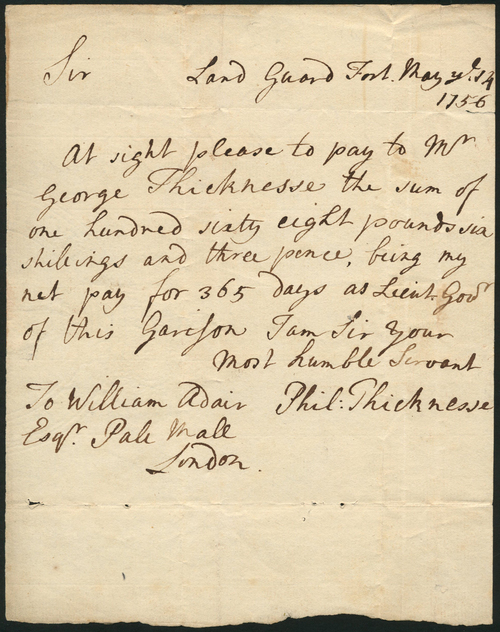 Sir Land Guard Fort. May ye. 14
1756
At sight please to pay to Mr
George Thicknesse the sum of
one hundred sixty eight pounds six
shillings and three pence, being my
net pay for 365 days as Lieut. Govr
of this Garison I am Sir your
most humble Servant
To William Adair Phil: Thicknesse
Esqr. Pale Mall
London.